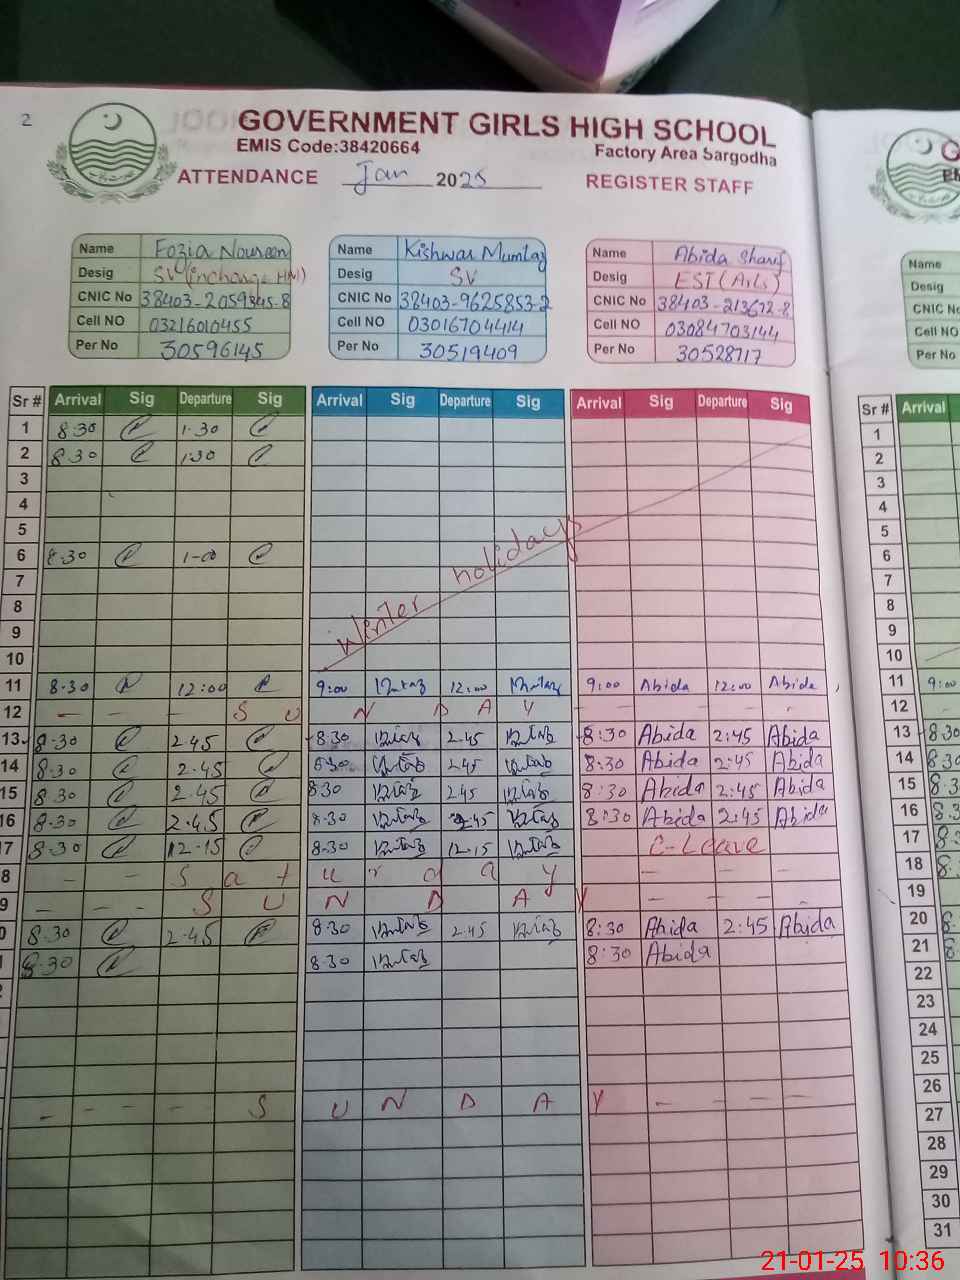 2
GOVERNMENT GIRLS HIGH SCHOOL
EMIS Code:38420664
Factory Area Sargodha
ATTENDANCE Jan 2025 REGISTER STAFF
Name Fozia Noureen
Desig SV (incharge HM)
CNIC No 38403-2059845-8
Cell NO 03216010455
Per No 30596145
Name Kishwar Mumtaz
Desig SV
CNIC No 38403-9625853-2
Cell NO 03016704414
Per No 30519409
Name Abida Sharif
Desig EST (Arts)
CNIC No 38403-213672-8
Cell NO 03084703144
Per No 30528717
Name
Desig
CNIC No
Cell NO
Per No
Sr # Arrival Sig Departure Sig Arrival Sig Departure Sig Arrival Sig Departure Sig Sr # Arrival
1 8:30 1:30 1
2 8:30 1:30 2
3 3
4 4
5 5
6 8:30 1-00 6
7 7
8 8
9 9
10 10
Winter holidays
11 8:30 12:00 9:00 Mumtaz 12:00 Mumtaz 9:00 Abida 12:00 Abida 11 9:00
12 - - - S U N D A Y - - - 12
13 8:30 2-45 8:30 2-45 8:30 Abida 2:45 Abida 13 8:30
14 8:30 2-45 8:30 2-45 8:30 Abida 2:45 Abida 14
15 8:30 2-45 8:30 2-45 8:30 Abida 2:45 Abida 15
16 8:30 2-45 8:30 2-45 8:30 Abida 2:45 Abida 16
17 8:30 12-15 8:30 12-15 C-Leave 17
8 - - S a t u r d a y - - 18
9 - - - S U N D A Y - - 19
0 8:30 2-45 8:30 2-45 8:30 Abida 2:45 Abida 20
8:30 8:30 8:30 Abida 21
22
23
24
25
26
- - - - S U N D A Y - - - 27
28
29
30
31
21-01-25 10:36